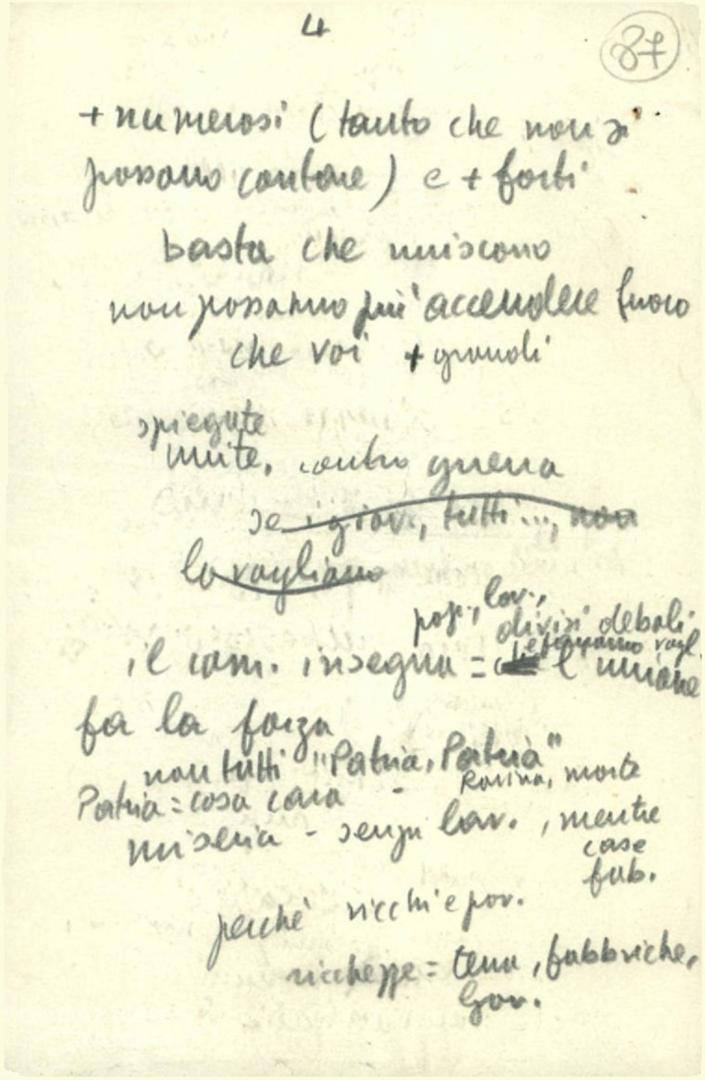 4
87
+ numerosi (tanto che non si
possono contare) e + forti
basta che uniscono
non possanno più accendere fuoco
che voi + grandi
spiegate
unite, contro guerra
se i giov., tutti ..., non
lo vogliano
pop., lov.,
divisi deboli.
il com. insegna = l'unione
fa la forza
non tutti "Patria, Patria"
Patria = cosa cara - Rovina, morte
miseria - senza lav., mentre
case
fab.
perché ricchi e pov.
ricchezze = terra, fabbriche,
Gov.